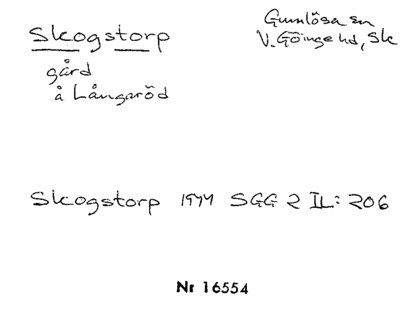 Skogstorp
Gumlösa sn
V. Göinge hd, Sk
gård
å Långaröd
Skogstorp 1977 SGG 2 II: 206
Nr 16554